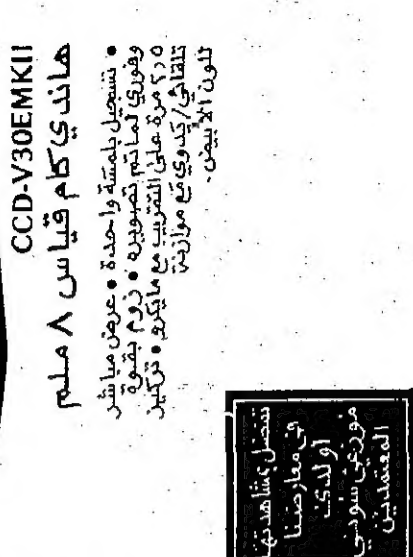 CCD-V30EMKII
هاندي كام قياس ٨ ملم
• تسجيل بلمسة واحدة • عرض مباشر
وفوري لما تم تصويره • زوم بقوة
٢,٥ مرة على التقريب مع مايكرو • تركيز
تلقائي / يدوي مع موازنة
تلون الأبيض.
تفضل بمشاهدتها
في معارضنا
او لدى
موزعي سوني
المعتمدين